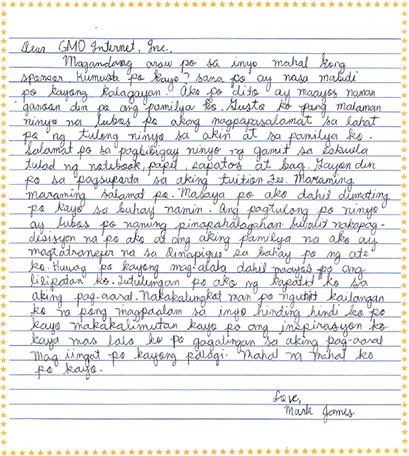 Dear GMO Internet, Inc.,
Magandang araw po sa inyo mahal kong
sponsor. Kumusta po kayo? sana po ay nasa mabuti
po kayong kalagayan. Ako po dito ay maayos naman
ganoon din po ang pamilya ko. Gusto ko pong malaman
ninyo na lubos po akong nagpapasalamat sa lahat
po ng tulong ninyo sa akin at sa pamilya ko.
Salamat po sa pagbibigay ninyo ng gamit sa eskwela
tulad ng notebook, papel, sapatos at bag. Gayon din
po sa pagsuporta sa aking tuition Fee. Maraming
maraming salamat po. Masaya po ako dahil dumating
po kayo sa buhay namin. Ang pagtulong po ninyo
ay lubos po naming pinapahalagahan subalit nakapag-
desisyon na po ako at ang aking pamilya na ako ay
magtatransfer na sa Dinapigue sa bahay po ng ate
ko. Huwag po kayong mag-alala dahil maayos po ang
lilipatan ko. Tutulungan po ako ng kapatid ko sa
aking pag-aaral. Nakakalungkot man po ngunit kailangan
ko na pong magpaalam sa inyo hinding hindi ko po
kayo makakalimutan kayo po ang inspirasyon ko
kaya mas lalo ko po gagalingan sa aking pag-aaral
Mag-ingat po kayong palagi. Mahal na mahal ko
po kayo.
Love,
Mark James